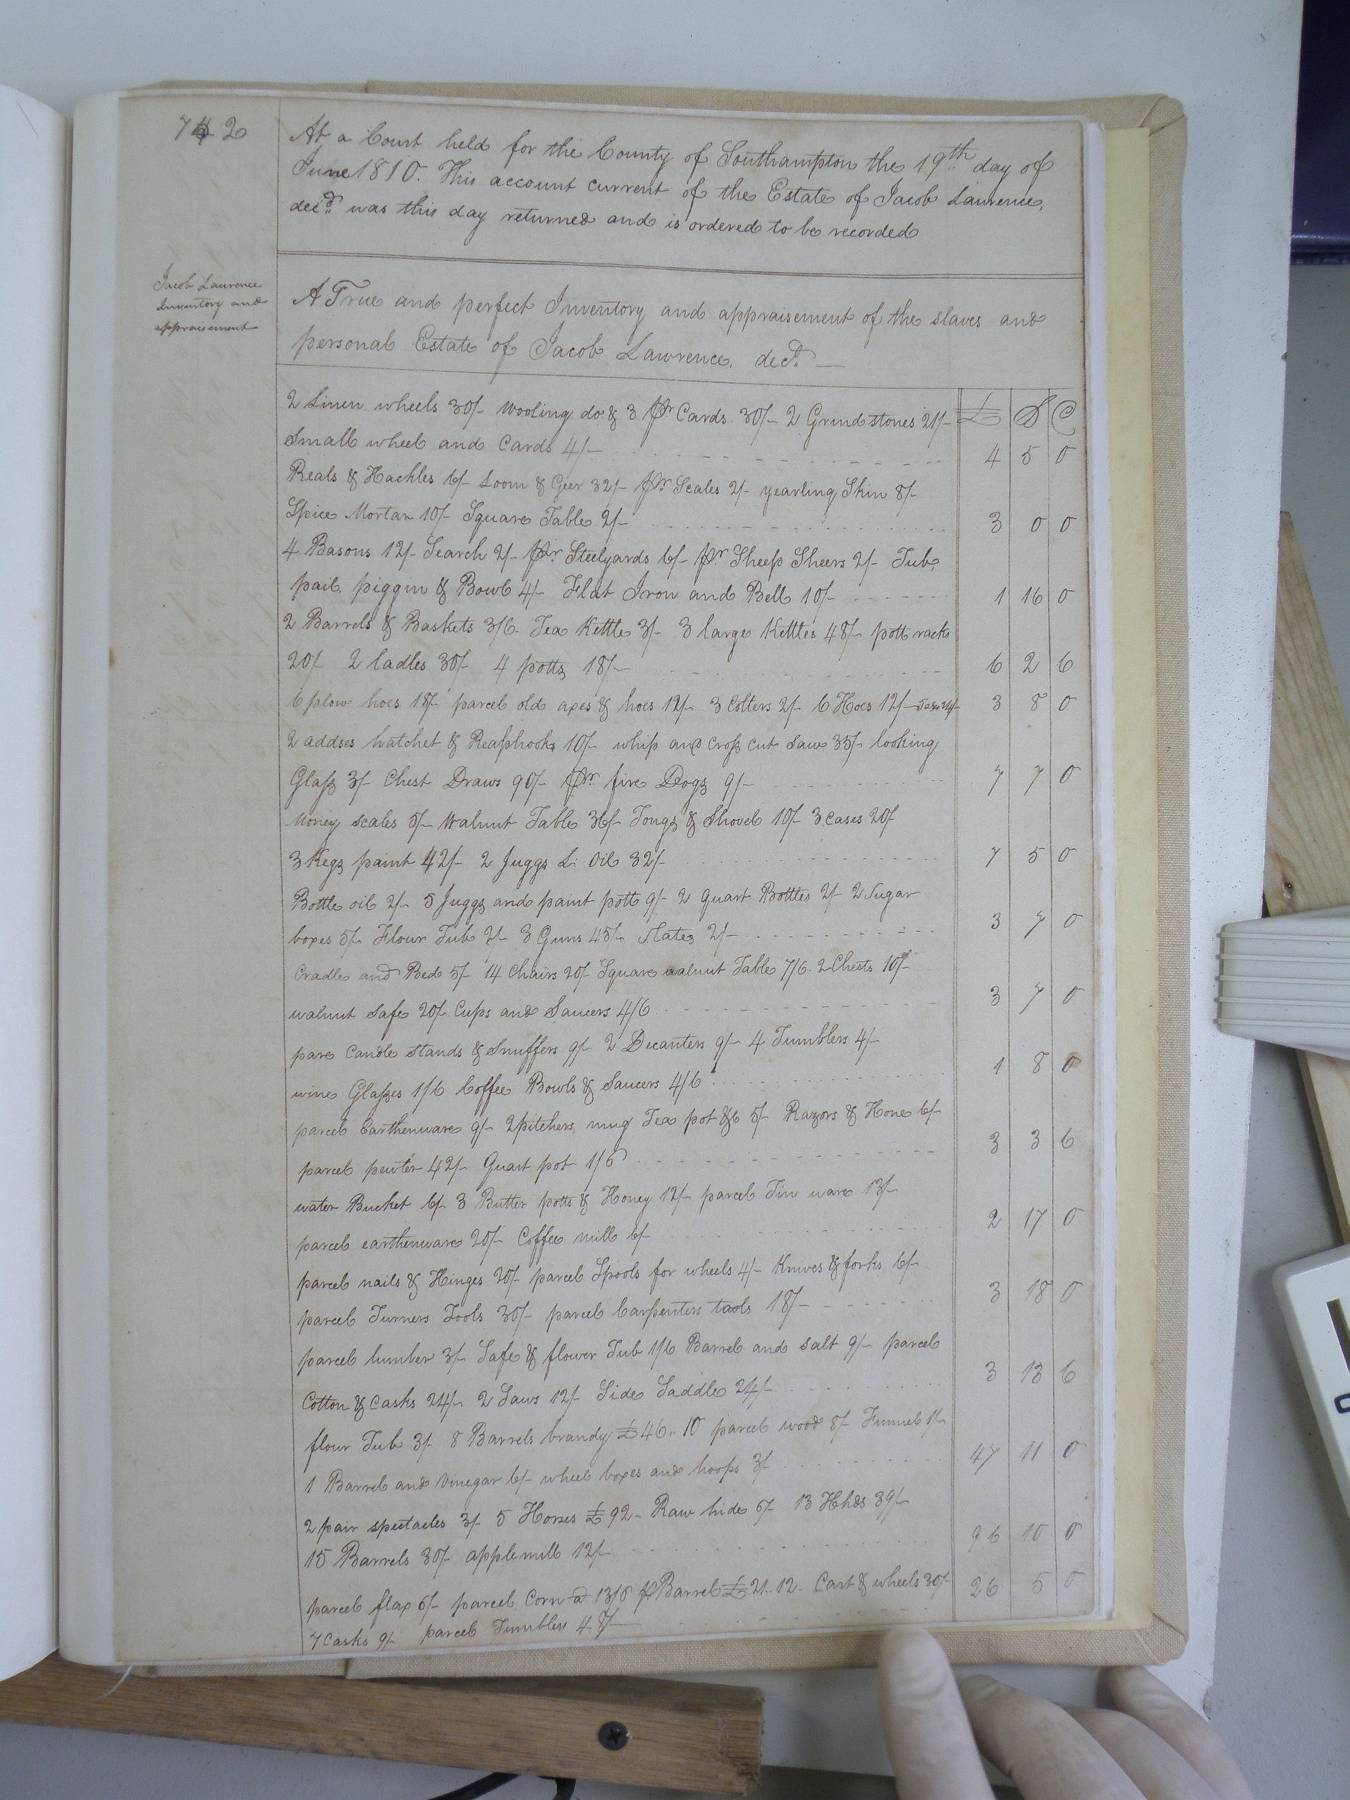 742
At a Court held for the County of Southampton the 19th day of
June 1810. This account current of the Estate of Jacob Lawrence,
decd was this day returned and is ordered to be recorded
Jacob Lawrence
Inventory and
appraisement
A True and perfect Inventory and appraisement of the slaves and
personal Estate of Jacob Lawrence, decd. —
£ S C
2 Linen wheels 30/- Wooling do & 3 pr Cards 30/- 2 Grindstones 21/-
Small wheel and Cards 4/- 4 5 0
Reals & Hackles 6/- Loom & Geer 32/- pr Scales 2/- yearling Skin 8/-
Spice Mortar 10/- Square Table 2/- 3 0 0
4 Basons 12/- Search 2/- pr Steelyards 6/- pr Sheep Sheers 2/- Tub,
pail, piggin & Bowl 4/- Flat Iron and Bell 10/- 1 16 0
2 Barrels & Baskets 3/6 Tea Kettle 3/- 3 large Kettles 48/- pott rack
20/- 2 ladles 30/- 4 potts 18/- 6 2 6
6 plow hoes 18/- parcel old axes & hoes 12/- 3 Colters 2/- 6 Hoes 12/- 3 8 0
2 addses hatchet & Reaphooks 10/- whip and cross cut saw 35/- looking
Glass 3/- Chest Draws 90/- pr fire Dogs 9/- 7 7 0
Money scales 5/- Walnut Table 36/- Tongs & Shovel 10/- 3 Cases 20/-
3 Kegs paint 42/- 2 Juggs L. Oil 32/- 7 5 0
Bottle oil 2/- 5 Juggs and paint potts 9/- 2 Quart Bottles 2/- 2 Sugar
boxes 5/- Flour Tub 2/- 3 Guns 45/- Slates 2/- 3 7 0
Cradle and Bed 5/- 14 Chairs 20/- Square walnut Table 7/6 2 Chests 10/-
walnut Safe 20/- Cups and Saucers 4/6 3 7 0
pare Candle stands & Snuffers 9/- 2 Decanters 9/- 4 Tumblers 4/-
wine Glasses 1/6 Coffee Bowls & Saucers 4/6 1 8 0
parcel Earthenware 9/- 2 pitchers, mug Tea pot &c 5/- Razors & Hone 6/-
parcel pewter 42/- Quart pot 1/6 3 3 6
water Bucket 6/- 3 Butter potts & Honey 12/- parcel Tin ware 13/-
parcel earthenware 20/- Coffee mill 6/- 2 17 0
parcel nails & Hinges 20/- parcel Spools for wheels 4/- Knives & forks 6/-
parcel Turners Tools 30/- parcel Carpenters tools 18/- 3 18 0
parcel lumber 3/- Safe & flower Tub 1/6 Barrel and salt 9/- parcel
Cotton & Casks 24/- 2 Saws 12/- Side Saddle 24/- 3 13 6
flour Tub 3/- 8 Barrels brandy £46.. 10 parcel wood 8/- Funnel 1/-
1 Barrel and Vinegar 6/- wheel boxes and hoops 3/- 47 11 0
2 pair spectacles 3/- 5 Horses £92 - Raw hide 6/- 13 Hhds 39/-
15 Barrels 30/- apple mill 12/- 96 10 0
parcel flax 6/- parcel Corn @ 13/6 p Barrel £21.. 12 - Cart & wheels 30/- 26 5 0
7 Casks 9/- parcel Tumblers 48/-